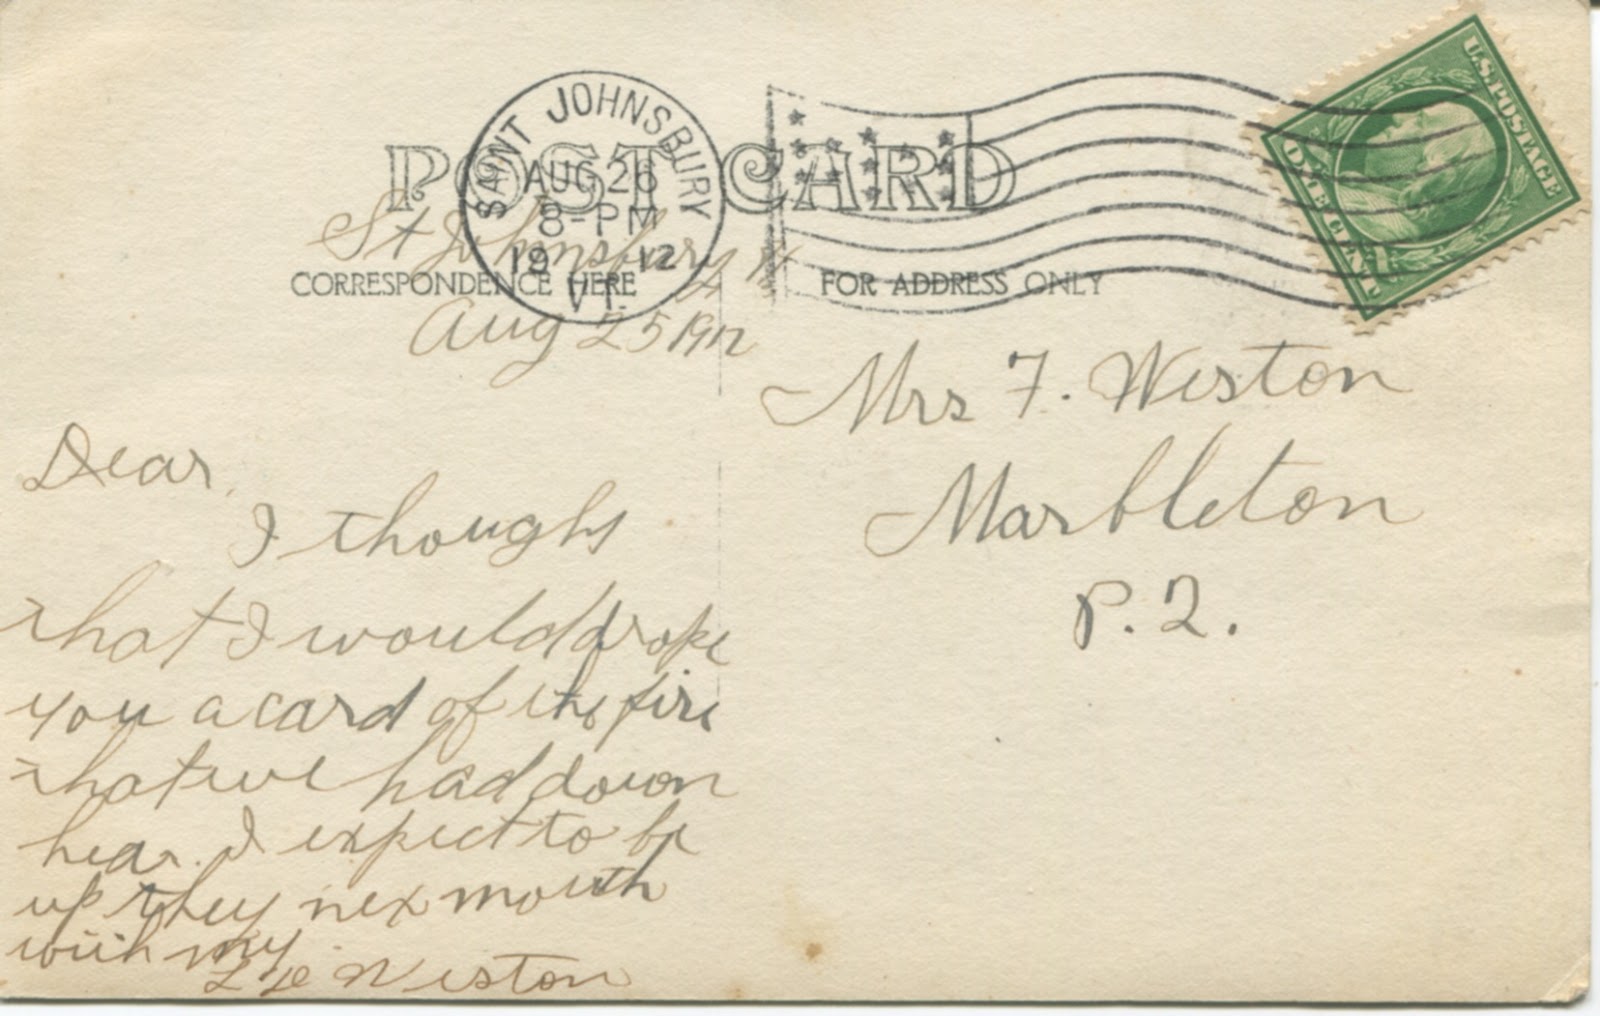 POST CARD
SAINT JOHNSBURY
AUG 26
8-PM
1912
VT.
U.S. POSTAGE
ONE CENT
CORRESPONDENCE HERE
FOR ADDRESS ONLY
St Johnsbury Vt
Aug 25 1912
Mrs F. Weston
Marbleton
P. Q.
Dear,
I though
that I would drope
you a card of the fire
that we had down
hear. I expect to be
up they nex mouth
with my
Weston